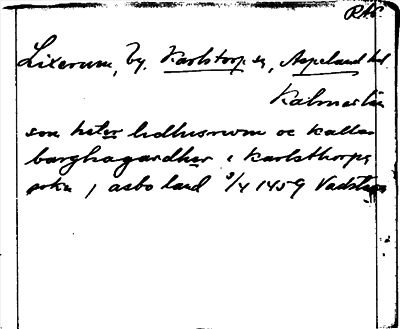 RAP.
Lixerum, by. Karlstorp sn, Aspeland hd.
Kalmar län
som heter lidhusrwm oc kallas
barghagardher i Karlsthorps
sokn j asbo land 3/4 1459 Vadstena